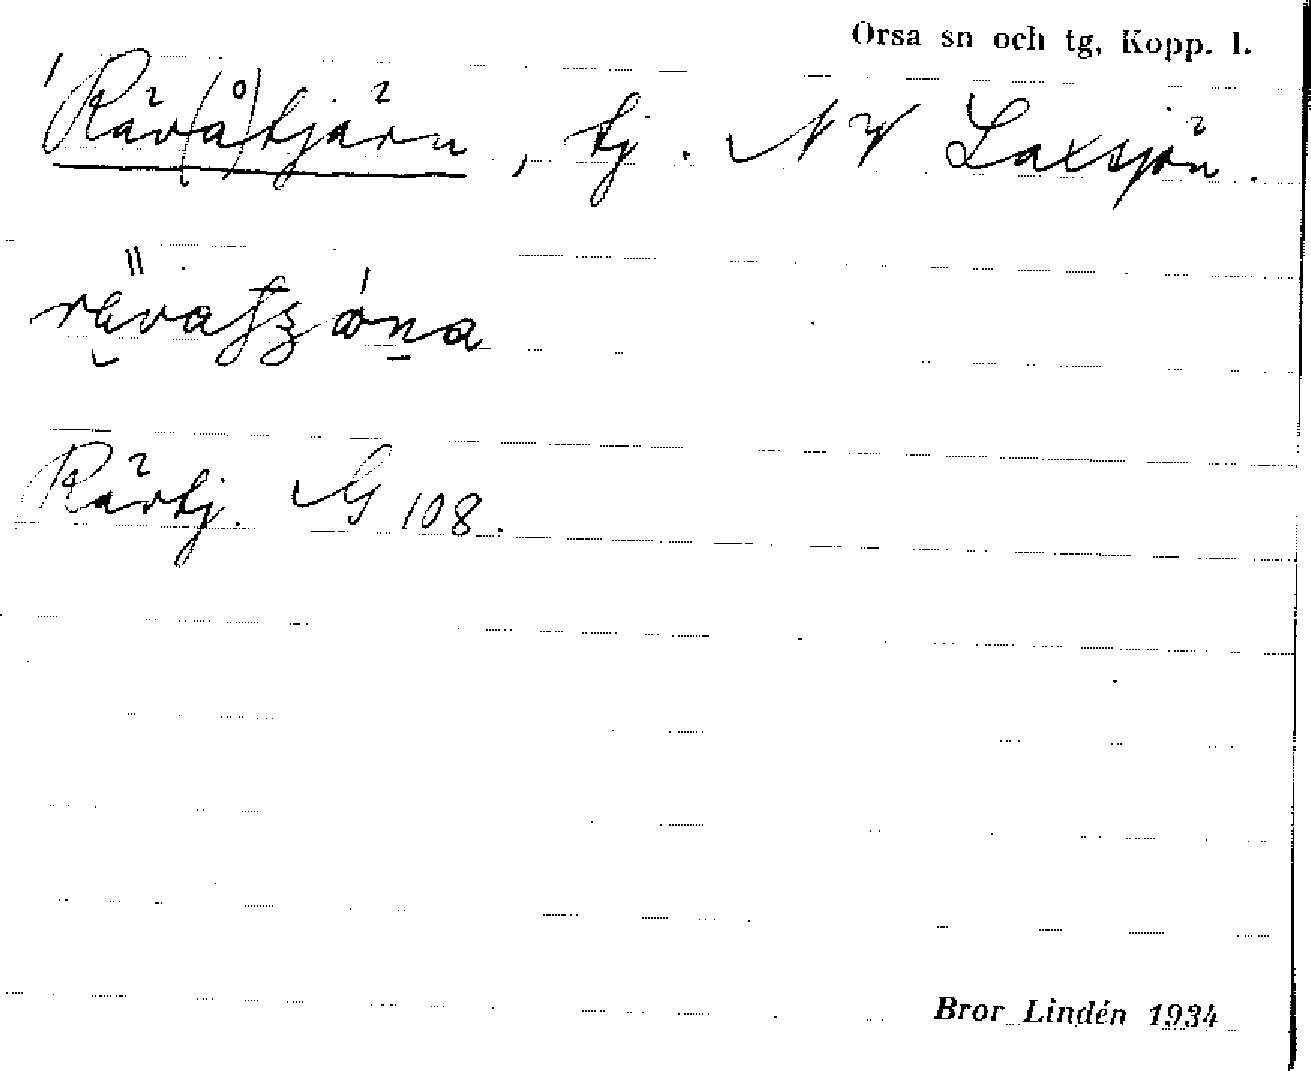 Orsa sn och tg, Kopp. l.
Räv(å)tjärn, tj. NV Laxsjön.
Rävtj. G 108.
Bror Lindén 1934